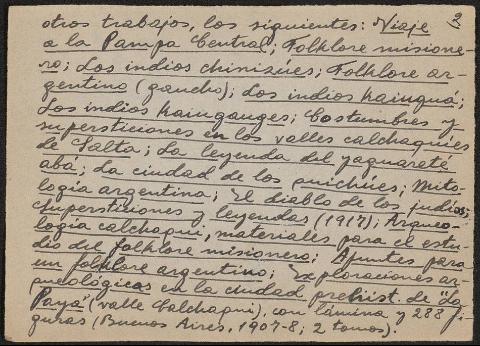 2
otros trabajos, los siguientes: Viaje
a la Pampa Central; Folklore misione-
ro; Los indios chinizúes; Folklore ar-
gentino (gaucho); Los indios kainguá;
Los indios kainganges; Costumbres y
supersticiones en los valles calchaquíes
de Salta; La leyenda del yaguareté
abá; La ciudad de los quichúes; Mito-
logía argentina; El diablo de los judíos;
Supersticiones y leyendas (1917); Arqueo-
logía calchaquí, materiales para el estu-
dio del folklore misionero; Apuntes para
un folklore argentino; Exploraciones ar-
queológicas en la ciudad prehist. de "La
Paya" (valle Calchaquí), con lámina y 288 fi-
guras (Buenos Aires, 1907-8; 2 tomos).